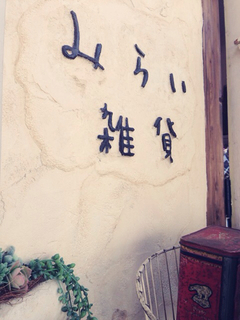 みらい
雑貨